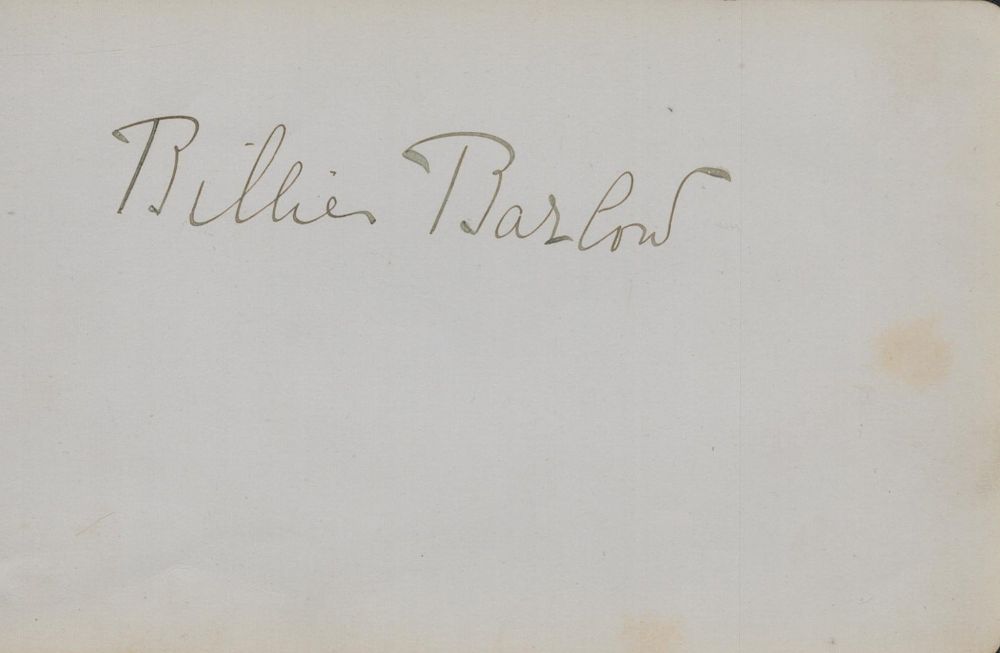 Billie Barlow